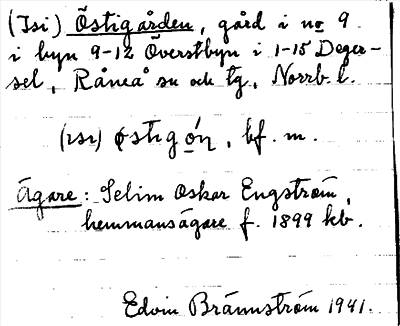 (Isi) Östigården, gård i no 9
i byn 9-12 Överstbyn i 1-15 Deger-
sel, Råneå sn och tg, Norrb. l.
(ısı) östigón, bf. m.
Ägare: Selim Oskar Engström,
hemmansägare f. 1899 kb.
Edvin Brännström 1941.